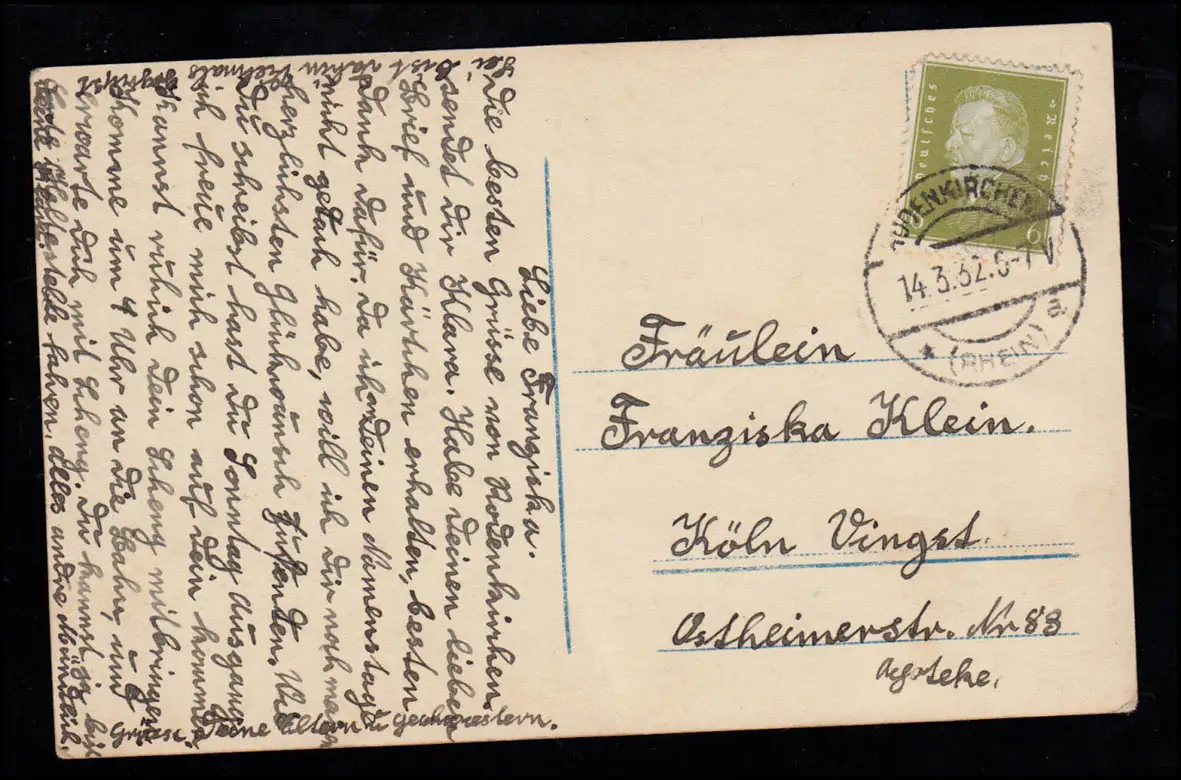 Liebe Franziska.
Die besten Grüsse von Rodenkirchen
sendet dir Klara. Habe deinen lieben
Brief und Kärtchen erhalten, besten
Dank dafür. Da ich deinen Namenstag
nicht gedach habe, will ich Dir noch mein
herzlichsten Glückwunsch
Du schreibst hast Du Sonntag Ausgang
ich freue mich schon auf dein kommen
Kannst ruhich dein Scheng mitbringen
Komme um 4 Uhr an die Bahn, und
Erwarte dich mit Scheng. Du kannst ja bis
Haltestelle fahren. alles andre Mündlich.
Grüsse Deine Eltern u. geschwestern.
Sei
vielmals
gegrüsst
Deutsches Reich
6
RODENKIRCHEN
14.3.32.6-7
* (RHEIN) a
Fräulein
Franziska Klein.
Köln Vingst.
Ostheimerstr. Nr 83
Apoteke.